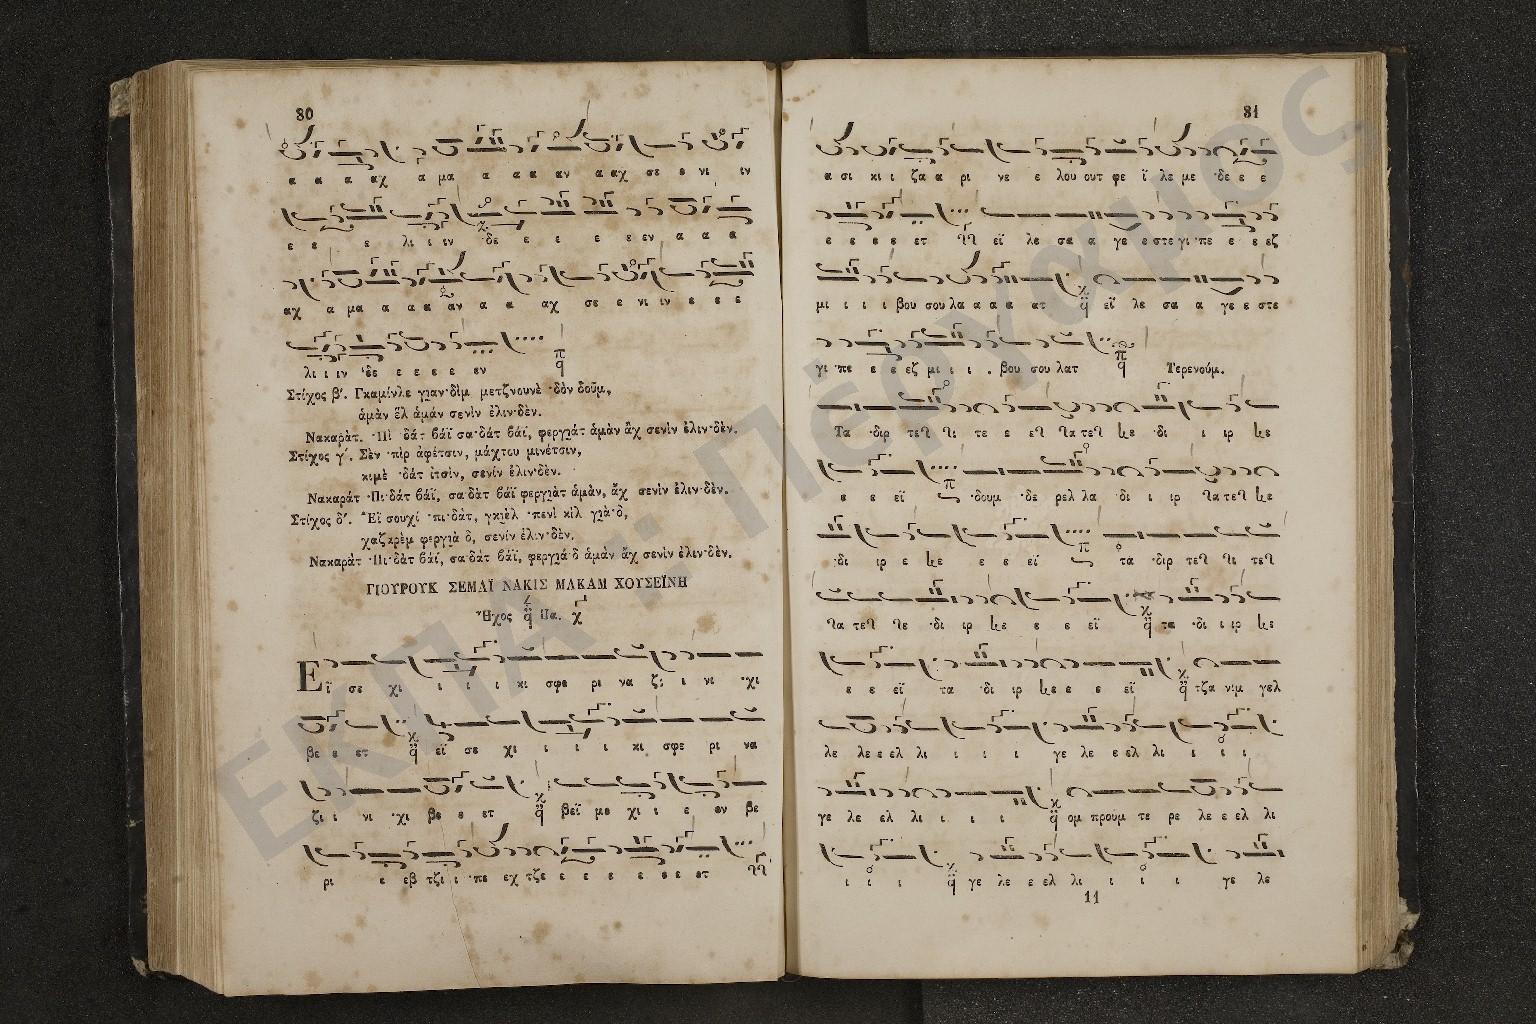 80
α α α αχ α μα α α α αν α αχ σε ε νι ιν
ε ε ε λι ι ιν ·δε ε ε ε ε εν α α α
αχ α μα α α α αν α α αχ σε ε νι ιν ε ε ε
λι ι ιν ·δε ε ε ε ε εν
Στίχος β΄. Γκαμίνλε γιαν·δὶμ μετζνουνὲ ·δὸν δοῦμ,
ἀμὰν ἒλ ἀμάν σενὶν ἐλιν·δὲν.
Νακαράτ. ·Πι ·δάτ βάϊ σα·δάτ βάϊ, φεργιὰτ ἀμὰν ἂχ σενὶν ἐλιν·δέν.
Στίχος γ΄. Σὲν ·πὶρ ἀφέτσιν, μάχτου μινέτσιν,
κιμὲ ·δάτ ἰτσὶν, σενίν ἐλιν·δέν.
Νακαράτ ·Πι·δάτ βάϊ, σα·δὰτ βάϊ φεργιὰτ ἀμὰν, ἂχ σενὶν ἐλιν·δὲν.
Στίχος δ΄. Ἐῒ σουχί ·πι·δὰτ, γκιὲλ ·πενὶ κὶλ γιὰ·δ,
χαζκρὲμ φεργιὰ δ, σενίν ἐλιν·δὲν.
Νακαρὰτ ·Πι·δὰτ βάϊ, σα·δὰτ βάϊ, φεργιά·δ ἀμάν ἂχ σενὶν ἐλιν·δέν.
ΓΙΟΥΡΟΥΚ ΣΕΜΑΪ ΝΑΚΙΣ ΜΑΚΑΜ ΧΟΥΣΕΪΝΗ
Ἦχος Πα.
Εῒ σε χι ι ι ι κι σφε ρι να ζι ι νι ·χι
βε ε ετ εῒ σε χι ι ι ι κι σφε ρι να
ζι ι νι ·χι βε ε ετ βεϊ με χι ι ε εν βε
ρι ε εβ τζι ι ·πε εχ τζε ε ε ε ε ε ετ
81
α σι κι ι ζα α ρι νε ε λου ουτ φε ϊ λε με ·δε ε ε
ε ε ε ε ετ εϊ λε σα α γε ε στε γι ·πε ε ε εζ
μι ι ι ι βου σου λα α α α ατ εϊ λε σα α γε ε στε
γι ·πε ε ε εζ μι ι ι βου σου λατ Τερενούμ.
Τα ·διρ
ε ε εϊ ·δουμ ·δε ρελ λα ·δι ι ιρ
·δι ιρ ε ε ε εϊ τα ·διρ
·δι ιρ ε ε εϊ τα ·δι ι ιρ
ε ε εϊ τα ·δι ιρ ε ε ε εϊ τζα νιμ γελ
λε λε ε ελ λι ι ι ι γε λε ε ελ λι ι ι ι
γε λε ελ λι ι ι ι ομ προυμ τε ρε λε ε ελ λι
ι ι ι γε λε ε ελ λι ι ι ι γε λε
11
ΕΚΠΑ: Πέργαμος